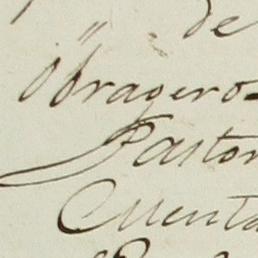 de
" Obragero
Pastor
Cuenta